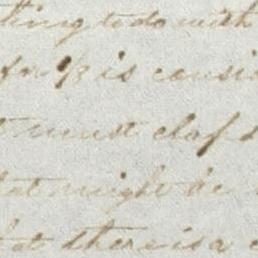 thing to do with
for 1/3 is consi
t must clas
at might be
at there is a